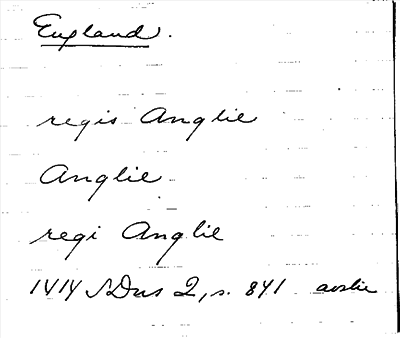 England.
regis Anglie
Anglie
regi Anglie
1414 SDns 2, s. 841 avskr